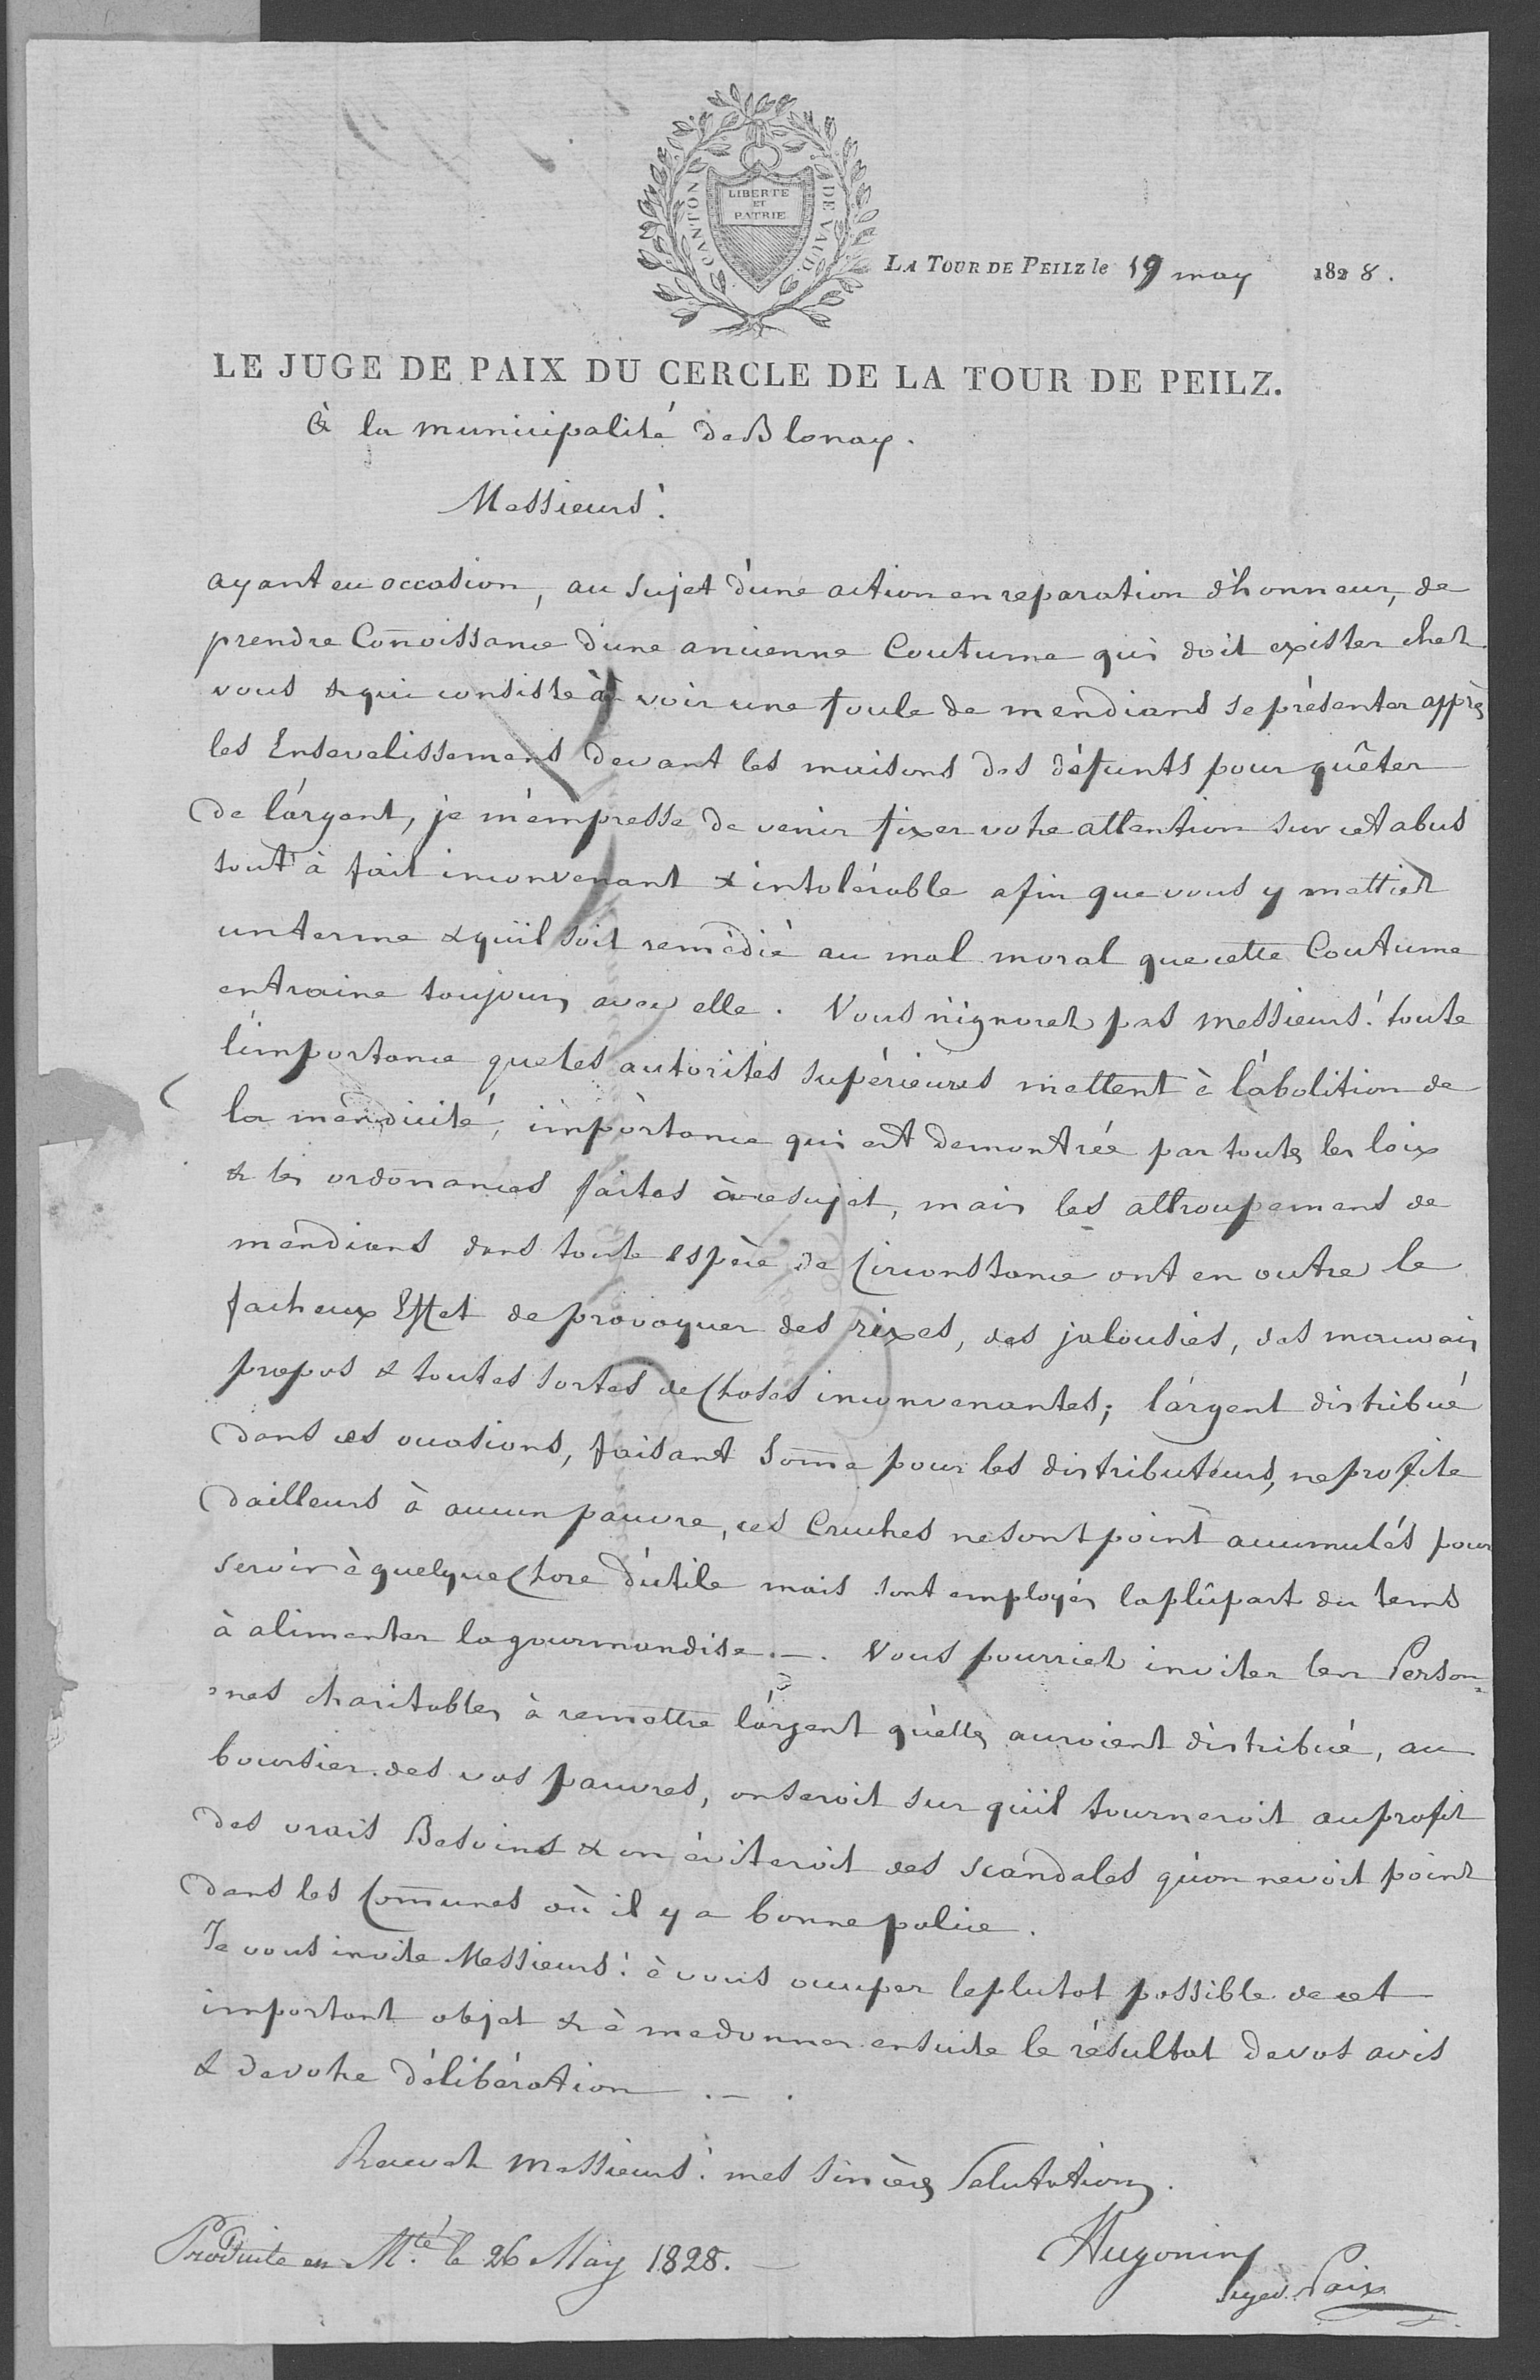 CANTON DE VAUD
LIBERTE
ET
PATRIE
LA TOUR DE PEILZ le 19 may 1828.
LE JUGE DE PAIX DU CERCLE DE LA TOUR DE PEILZ.
à la municipalité de Blonay.
Messieurs!
ayant eu occasion, au sujet d'une action en reparation d'honneur, de
prendre Conoissance d'une ancienne Coutume qui doit exister chez
vous & qui consiste à voir une foule de mendians se présenter apprès
les Ensevelissemens devant les maisons des défunts pour quêter
de l'argent, je m'empresse de venir fixer votre attention sur cet abus
tout à fait inconvenant & intolérable afin que vous y mettiez
un terme & qu'il soit remèdié au mal moral que cette Coutume
entraine toujours avec elle. Vous n'ignorez pas messieurs! toute
l'importance que les autorités supérieures mettent à l'abolition de
la mendicité, importance qui est demontrée par toutes les loix
& les ordonances faites à ce sujet, mais les attroupemens de
mendians dans toute espèce de Circonstance ont en outre le
facheux Effet de provoquer des rixes, des jalousies, des mauvais
propos & toutes sortes de Choses inconvenantes; l'argent distribué
dans ces occasions, faisant Some pour les distributeurs, ne profite
dailleurs à aucun pauvre, ces Cruches ne sont point accumulés pour
servir à quelque Chose d'utile mais sont employés la plûpart du tems
à alimenter la gourmandise.—. Vous pourriez inviter les Person=
=nes charitables à remettre l'argent qu'elles auroient distribué, au
boursier des vos pauvres, on seroit sur qu'il tourneroit au profit
des vrais Besoins & on éviteroit des scandales qu'on ne voit point
dans les Comunes où il y a bonne police.
Je vous invite Messieurs! à vous occuper le plutot possible de cet
important objet & à me donner ensuite le résultat de vos avis
& de votre délibération .—.
Recevez Messieurs! mes sincères Salutations.
Hugonin
Juge de Paix
Produite en Mté. le 26 May 1828.—